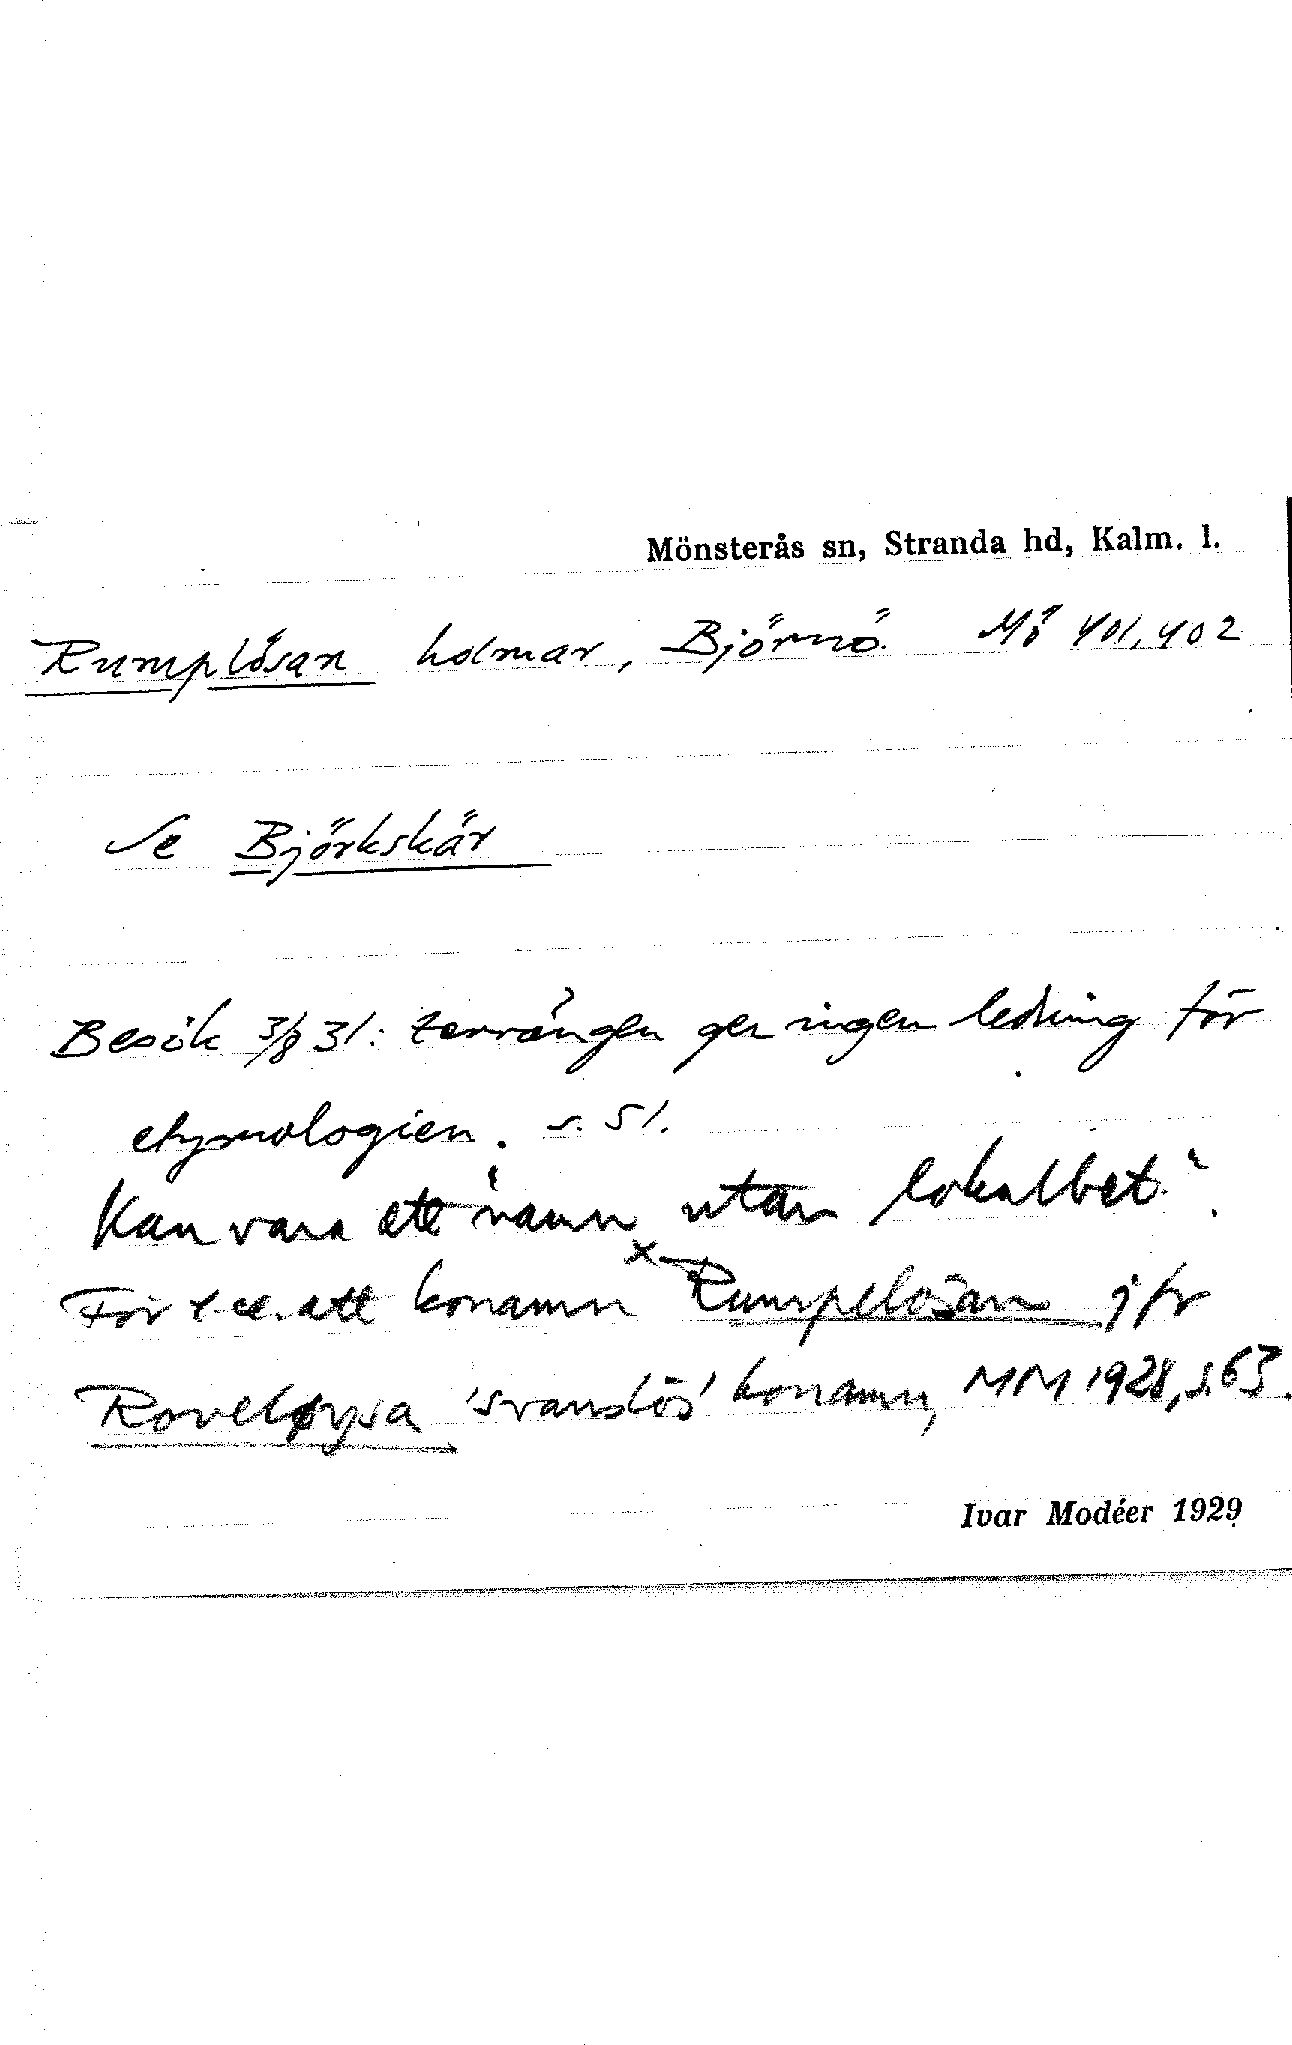 Mönsterås sn, Stranda hd, Kalm. l.
Rumplösan holmar, Björnö. Mö 401, 402
Se Björkskär
Besök 3/8 31: terrängen ger ingen ledning för
etymologien. s. 51.
Kan vara ett "namn utan lokalbet."
För ett konamn ˣRumpelösan jfr
Roveløysa 'svanslös' konamn, MM 1928, s. 63.
Ivar Modéer 1929